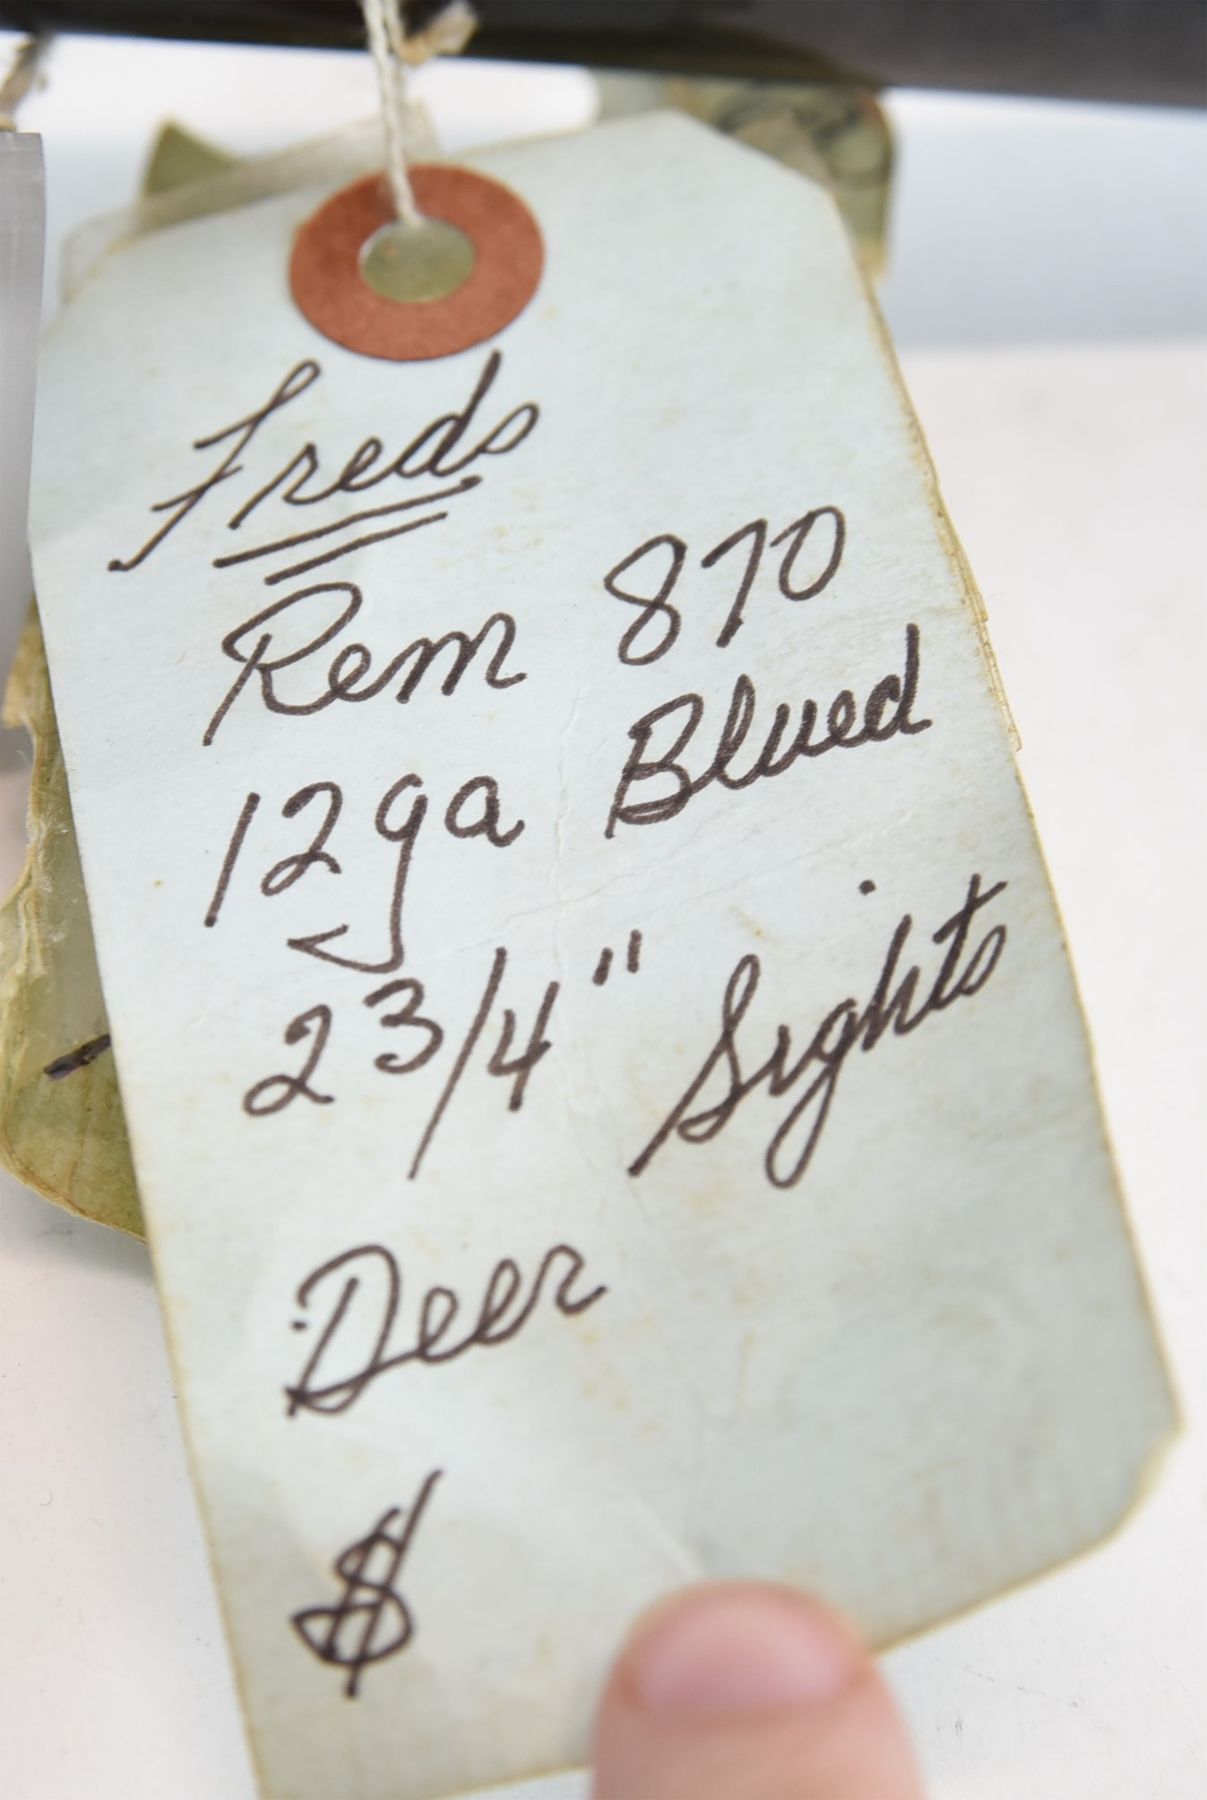 Freds
Rem 870
12ga Blued
2 3/4" Sights
Deer
$